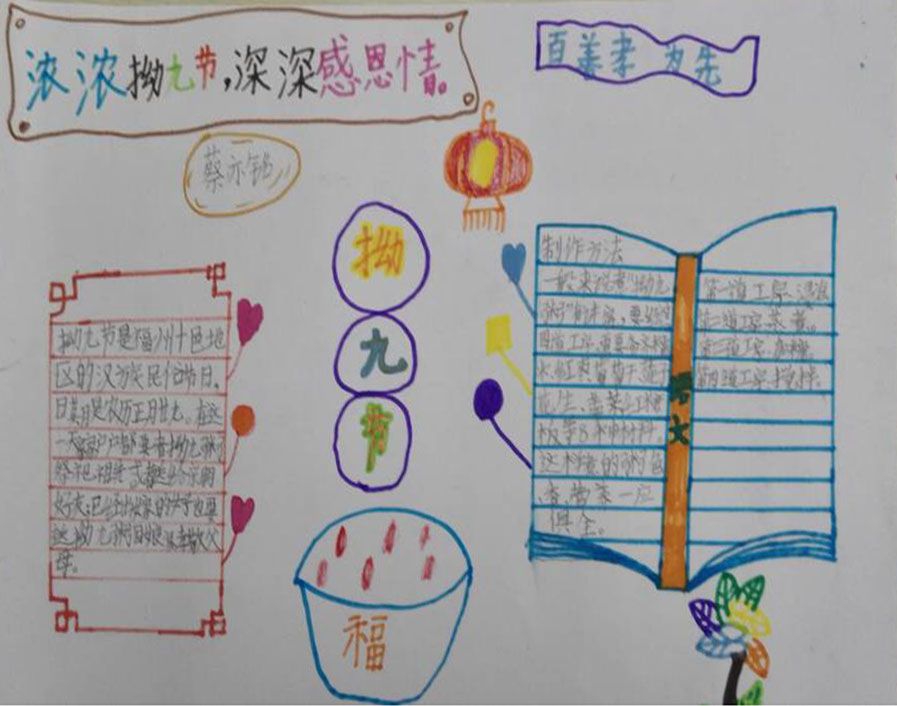 浓浓拗九节,深深感恩情。
百善孝为先
蔡亦铭
拗
九
节
福
拗九节是福州十邑地
区的汉族民俗节日。
日期是农历正月廿九。在这
一大家户户都要煮拗九粥
祭祀祖先或赠送给亲朋
好友,已经出嫁的女子也要
送拗九粥回娘家孝敬父
母。
制作方法
一般来说煮"拗九
粥"的丰富,要
四道工序,需要备
水,红
花生、
板等8种材料。
这样煮的粥色
、香、营养一应
俱全。
语文
第一道工序:浸泡
第二道工序:蒸煮。
第三道工序:加糖。
第四道工序:搅拌。